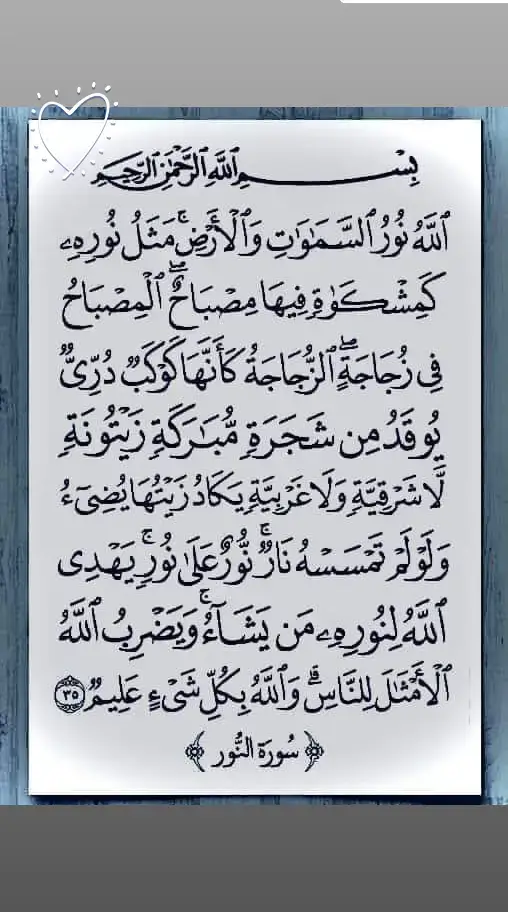 بِسْمِ ٱللَّهِ ٱلرَّحْمَٰنِ ٱلرَّحِيمِ
ٱللَّهُ نُورُ ٱلسَّمَٰوَٰتِ وَٱلْأَرْضِ ۚ مَثَلُ نُورِهِۦ
كَمِشْكَوٰةٍ فِيهَا مِصْبَاحٌ ۖ ٱلْمِصْبَاحُ
فِى زُجَاجَةٍ ۖ ٱلزُّجَاجَةُ كَأَنَّهَا كَوْكَبٌ دُرِّىٌّ
يُوقَدُ مِن شَجَرَةٍ مُّبَٰرَكَةٍ زَيْتُونَةٍ
لَّا شَرْقِيَّةٍ وَلَا غَرْبِيَّةٍ يَكَادُ زَيْتُهَا يُضِىٓءُ
وَلَوْ لَمْ تَمْسَسْهُ نَارٌ ۚ نُّورٌ عَلَىٰ نُورٍ ۗ يَهْدِى
ٱللَّهُ لِنُورِهِۦ مَن يَشَآءُ ۚ وَيَضْرِبُ ٱللَّهُ
ٱلْأَمْثَٰلَ لِلنَّاسِ ۗ وَٱللَّهُ بِكُلِّ شَىْءٍ عَلِيمٌ ٣٥
﴿ سُورَة النُّور ﴾